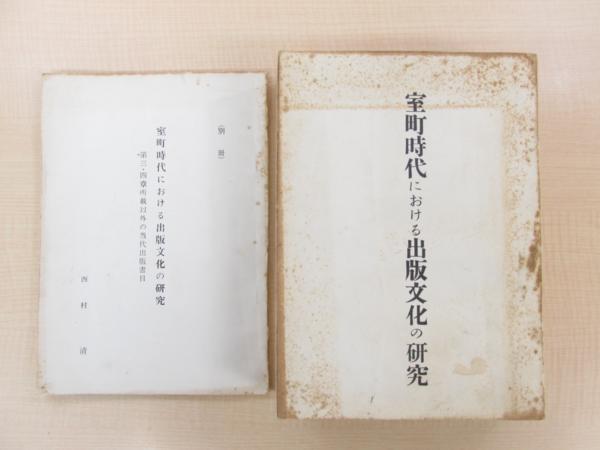 (別冊)
室町時代における出版文化の研究
第三・四章所載以外の当代出版書目
西村清
室町時代における出版文化の研究